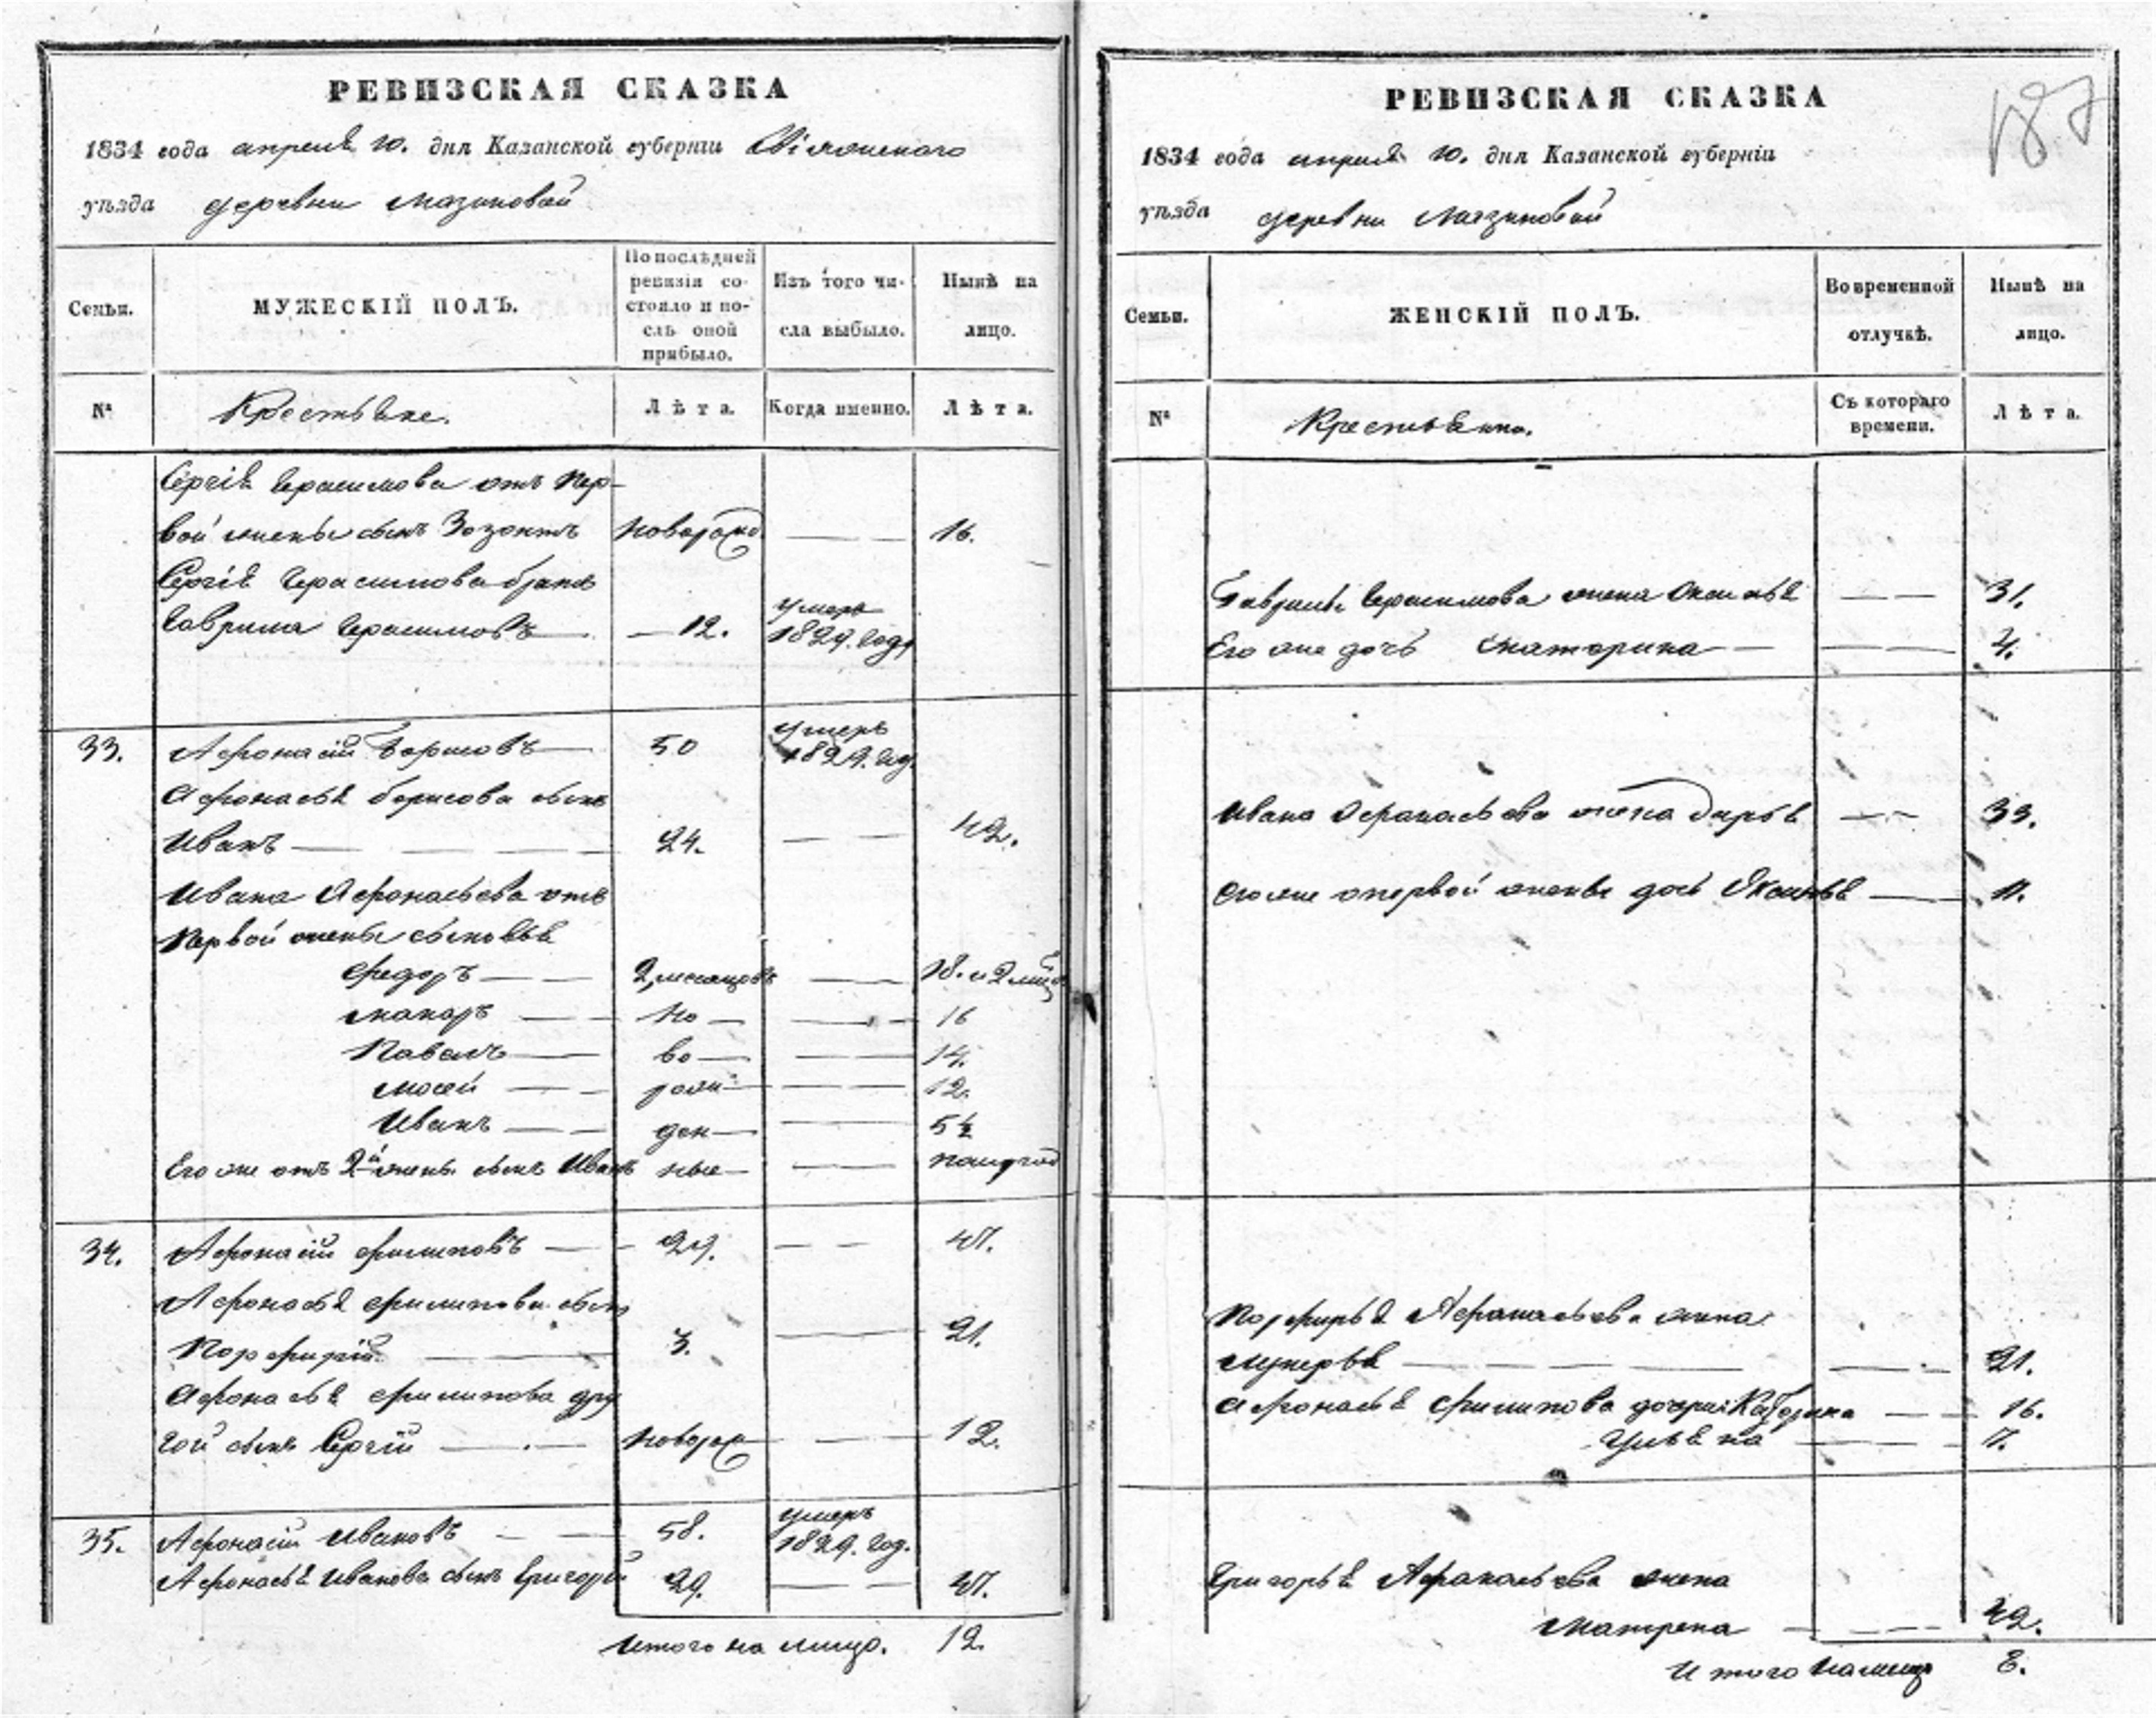 РЕВИЗСКАЯ СКАЗКА
1834 года апреля 10. дня Казанской губерніи
уѣзда деревни Мазиковой
Семьи.
МУЖЕСКІЙ ПОЛЪ.
По послѣдней ревизіи состояло и послѣ оной прибыло.
Изъ того числа выбыло.
Нынѣ на лицо.
№
Крестьяне.
Лѣта.
Когда именно.
Лѣта.
Сергія Герасимова отъ пер-
вой жены сынъ Зозонтъ новорожд 16.
Сергія Герасимова братъ
Гаврила Герасимовъ 12. умеръ 1829. года
33. Афонасій Борисовъ 50 умеръ 1829. год.
Афонасья Борисова сынъ
Иванъ 24. 42.
Ивана Афонасьева отъ
первой жены сыновья
Федоръ 2 месяцовъ 18. и 2 мц
Макаръ но 16
Павелъ во 14.
Мосей рож 12.
Иванъ ден 5½
Его же отъ 2й жены сынъ Иванъ ные полгод
34. Афонасій Филиповъ 29. 47.
Афонасья Филипова сынъ
Порфирій 3. 21.
Афонасья Филипова дру
гой сынъ Сергій новорож 12.
35. Афонасій Ивановъ 58. умеръ 1829. год.
Афонасья Иванова сынъ Григорій 29. 47.
Итого на лицо. 12.
187
РЕВИЗСКАЯ СКАЗКА
1834 года апреля 10. дня Казанской губерніи
уѣзда деревни Мазиковой
Семьи.
ЖЕНСКІЙ ПОЛЪ.
Во временной отлучкѣ.
Нынѣ на лицо.
№
Съ котораго времени.
Лѣта.
Гаврилы Герасимова жена Оксинья 31.
Его же дочь Катарина 4.
Ивана Афанасьева жена Дарья 33.
Его же от первой жены дочь Оксинья 11.
Порфирья Афанасьева жена
Лукерья 21.
Афонасья Филипова дочери Катерина 16.
Ульяна 7.
Григорья Афанасьева жена
Матрена 42.
Итого на лицо 8.